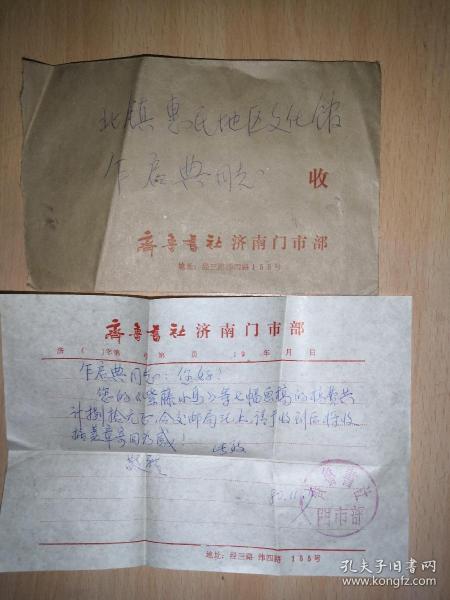 北镇惠民地区文化馆
乍启典同志
收
齐鲁书社济南门市部
地址：经三路纬四路155号
齐鲁书社济南门市部
济（ ）字第 号 第 页 19 年 月 日
乍启典同志：您好！
您的《紫藤小鸟》等七幅画稿的稿费共
计捌拾元正，今交邮局汇上，请于收到后将收
据盖章寄回为感！
此致
敬礼
82.11.
齐鲁书社
门市部
地址：经三路 纬四路 155号
孔夫子旧书网
www.kongfz.com